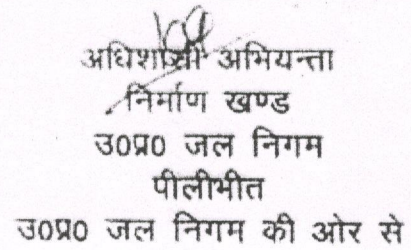 अधिशासी अभियन्ता
निर्माण खण्ड
उ0प्र0 जल निगम
पीलीभीत
उ0प्र0 जल निगम की ओर से